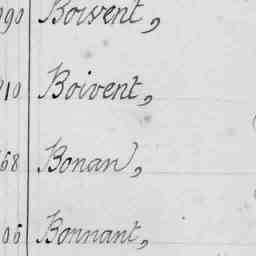 990 Boisvent,
210 Boivent,
568 Bonan,
06 Bonnant,